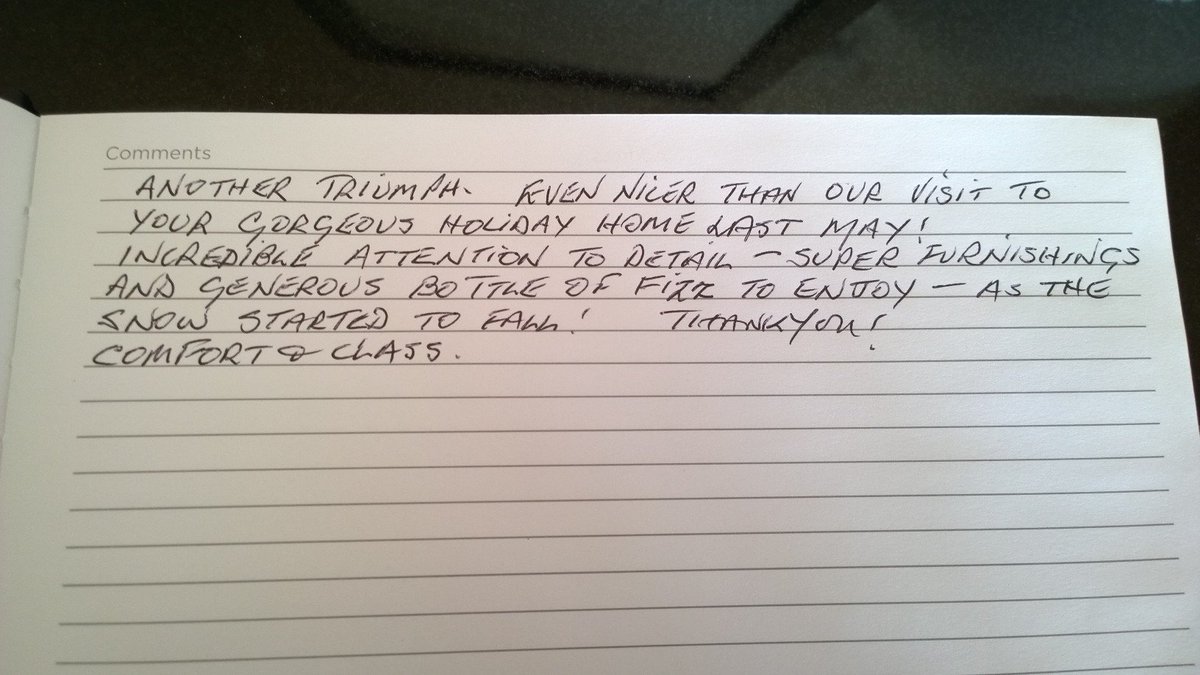 Comments
ANOTHER TRIUMPH. EVEN NICER THAN OUR VISIT TO
YOUR GORGEOUS HOLIDAY HOME LAST MAY!
INCREDIBLE ATTENTION TO DETAIL – SUPER FURNISHINGS
AND GENEROUS BOTTLE OF FIZZ TO ENJOY – AS THE
SNOW STARTED TO FALL! THANKYOU!
COMFORT & CLASS.